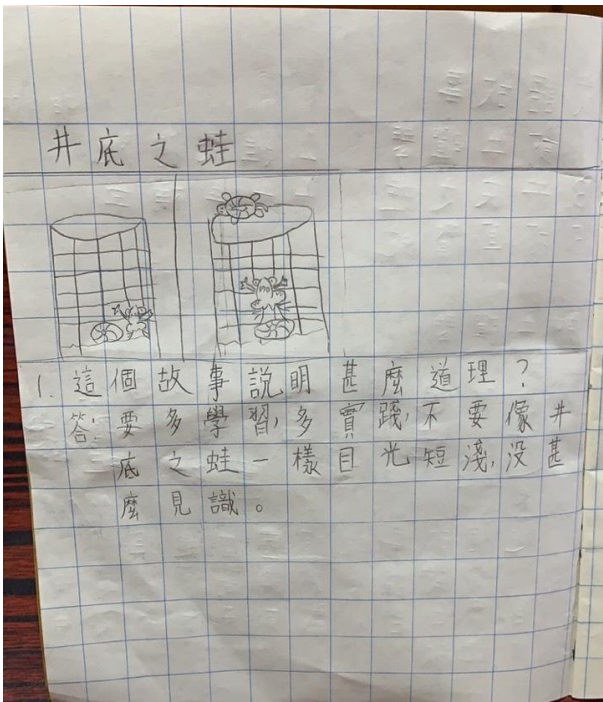 井底之蛙
1. 這個故事說明甚麼道理？
答：要多學習，多實踐，不要像井
底之蛙一樣目光短淺，没甚
麼見識。